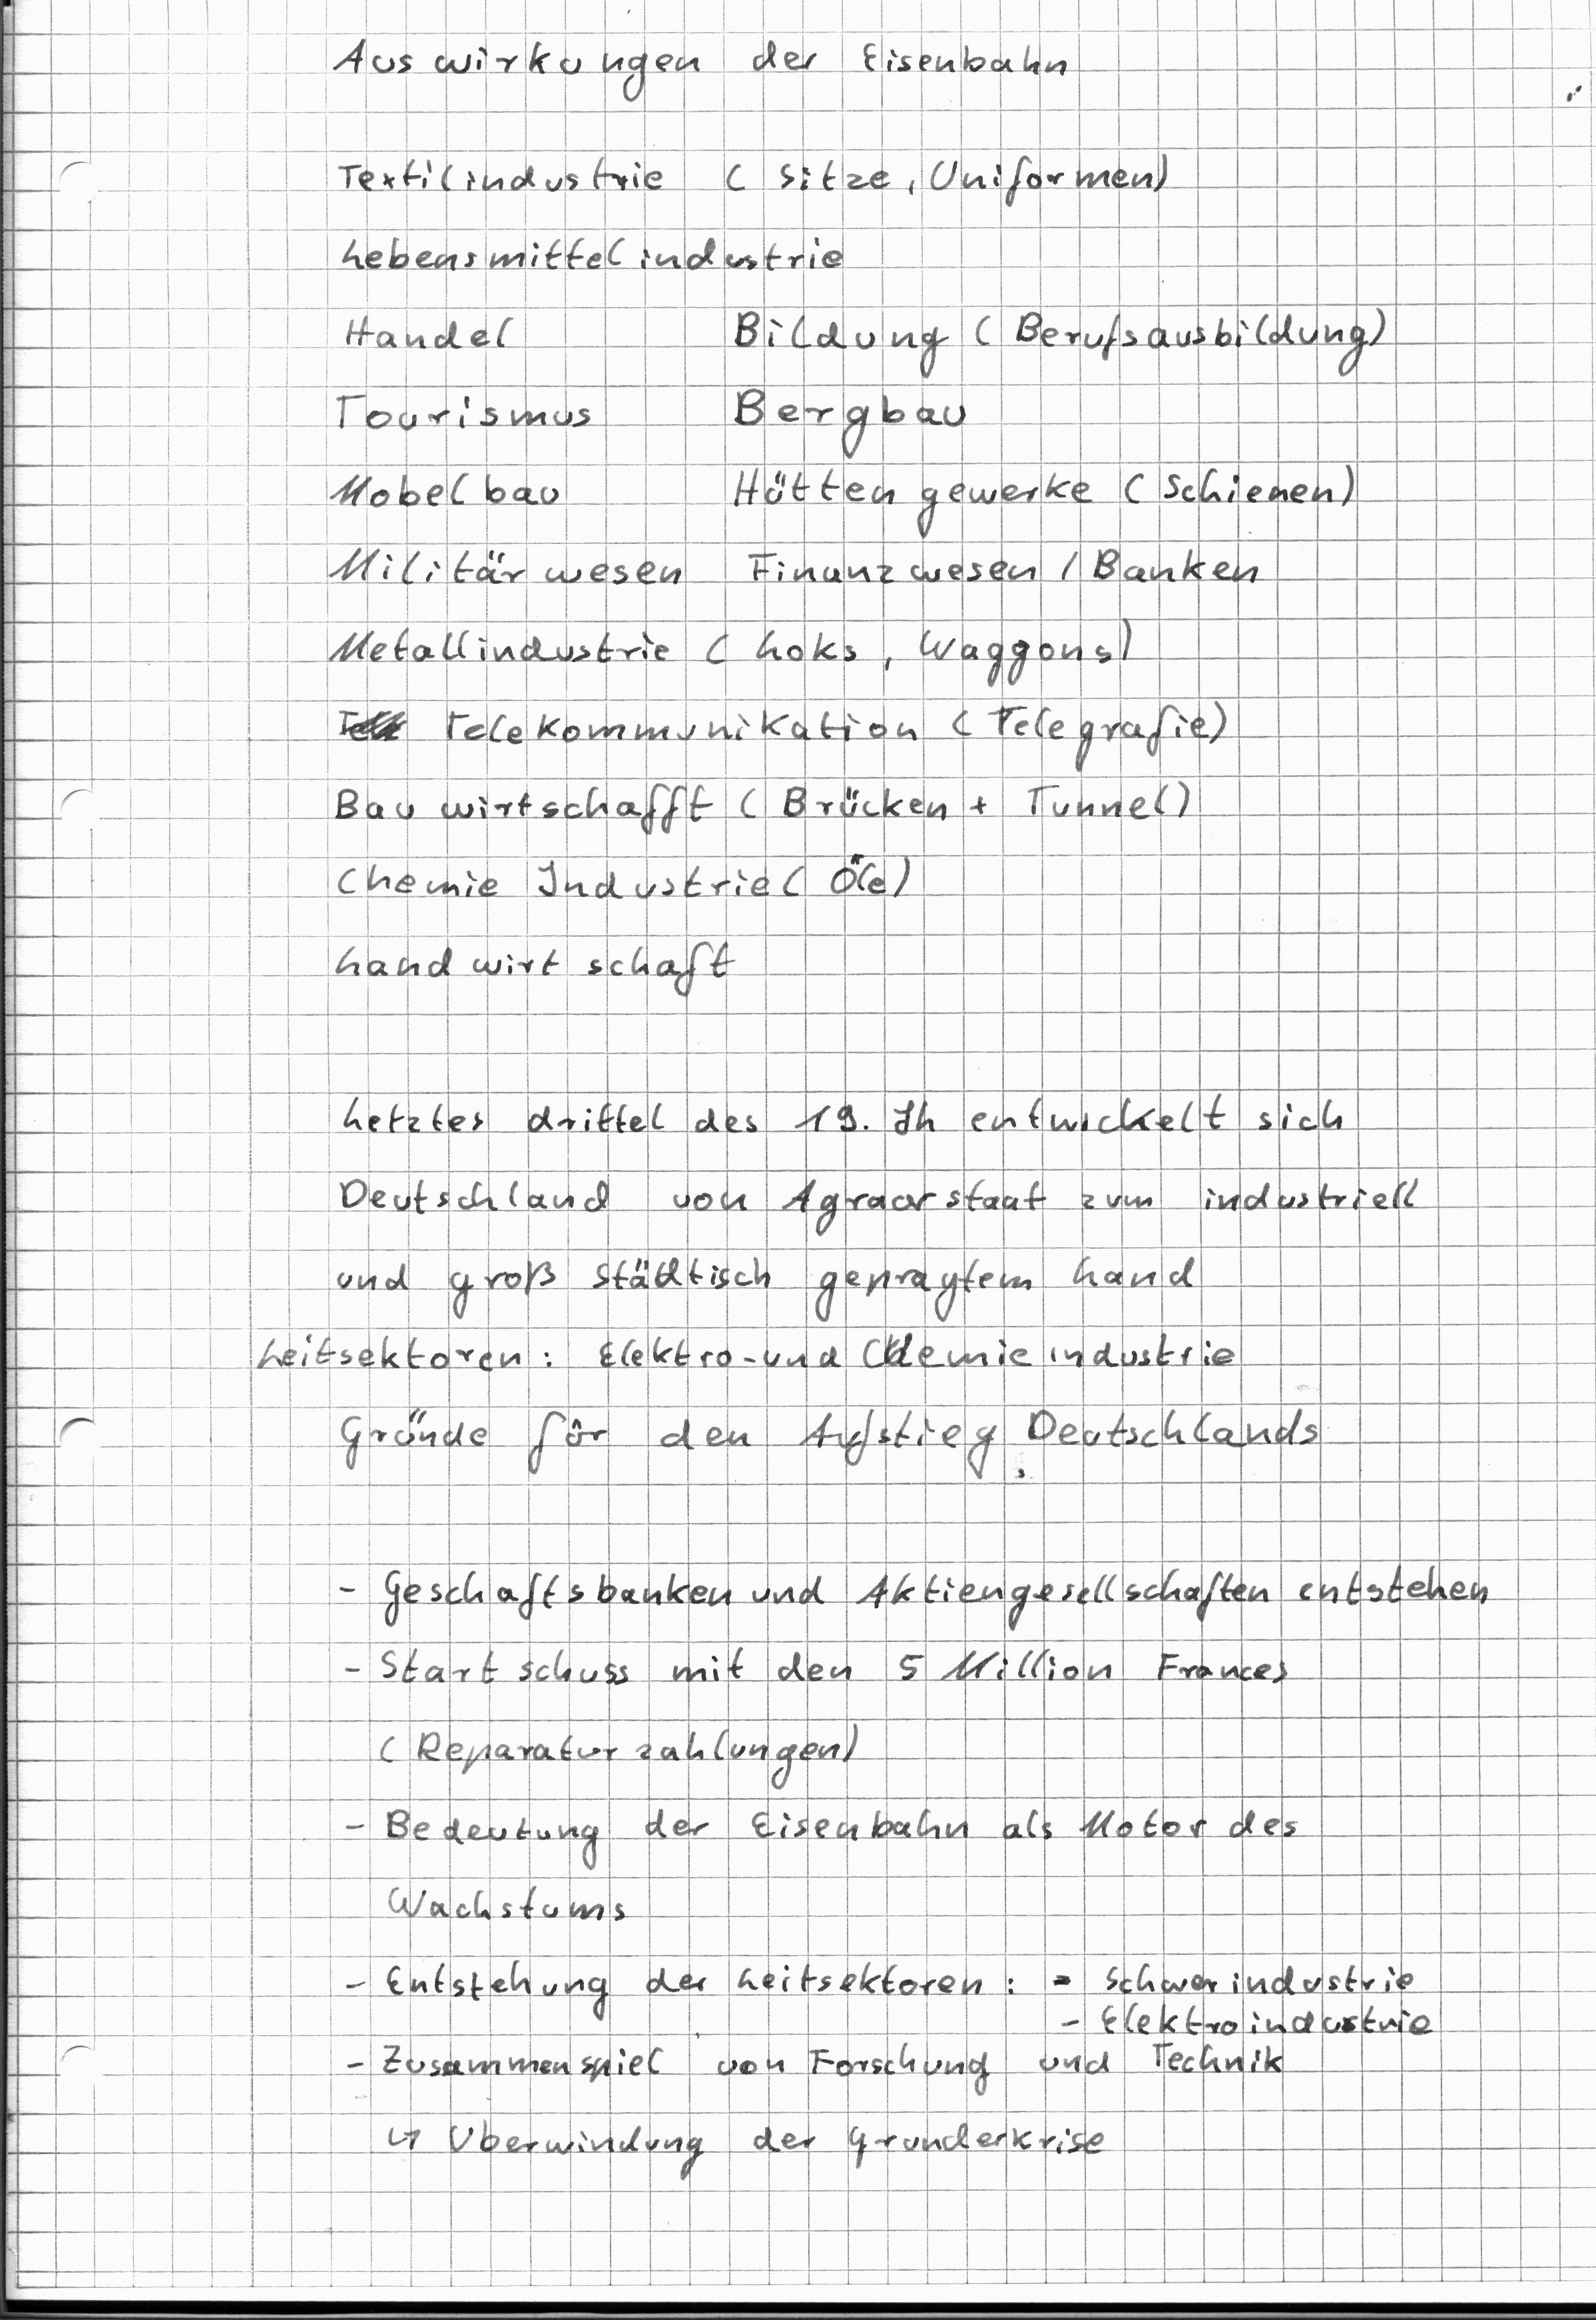 Auswirkungen der Eisenbahn
Textilindustrie (Sitze, Uniformen)
Lebensmittelindustrie
Handel Bildung (Berufsausbildung)
Tourismus Bergbau
Mobelbau Hüttengewerke (Schienen)
Militärwesen Finanzwesen / Banken
Metallindustrie (Loks, Waggons)
Telekommunikation (Telegrafie)
Bauwirtschafft (Brücken + Tunnel)
Chemie Industrie (Öle)
Landwirtschaft
Letztes drittel des 19. Jh entwickelt sich
Deutschland von Agraarstaat zum industriell
und groß städtisch gepragtem Land
Leitsektoren: Elektro-und Chemieindustrie
Gründe für den Aufstieg Deutschlands
- Geschaftsbanken und Aktiengesellschaften entstehen
- Startschuss mit den 5 Million Frances
(Reparaturzahlungen)
- Bedeutung der Eisenbahn als Motor des
Wachstums
- Entstehung der Leitsektoren: - Schwerindustrie
- Elektroindustrie
- Zusammenspiel von Forschung und Technik
↳ Uberwindung der Grunderkrise